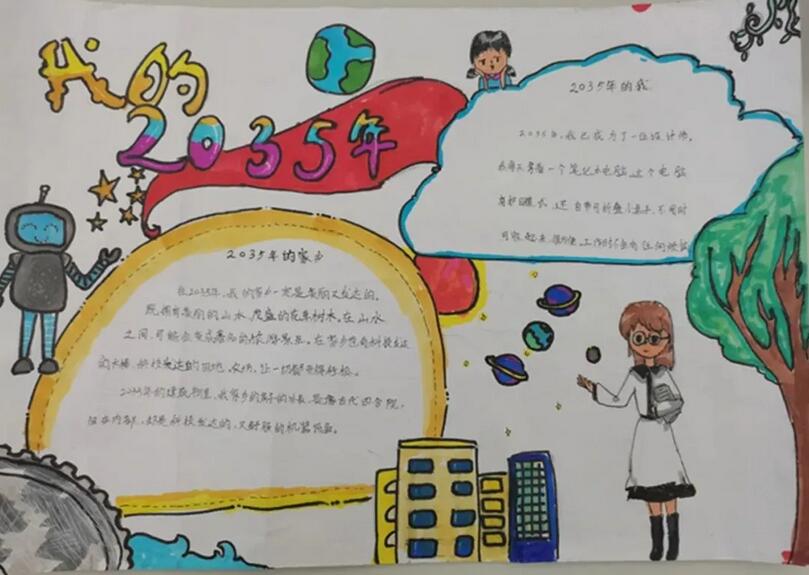 我的
2035年
2035年的我
2035年,我已成为了一位设计师。
我每天拿着一个笔记本电脑,这个电脑
有护眼模式,还自带可折叠小桌子,不用时
可收起来,很方便,工作时不会有任何
2035年的家乡
在2035年,我的家乡一定是美丽又发达的。
既拥有美丽的山水,茂盛的花草树木。在山水
之间,可能会变成著名的旅游景点。在家乡也有科技发达
的大楼,科技发达的田地、农场,让一切都变得轻松。
2035年的建筑物里,我家乡的房子的外表,是像古代四合院,
但在内部,却是科技发达的,又舒服的机器